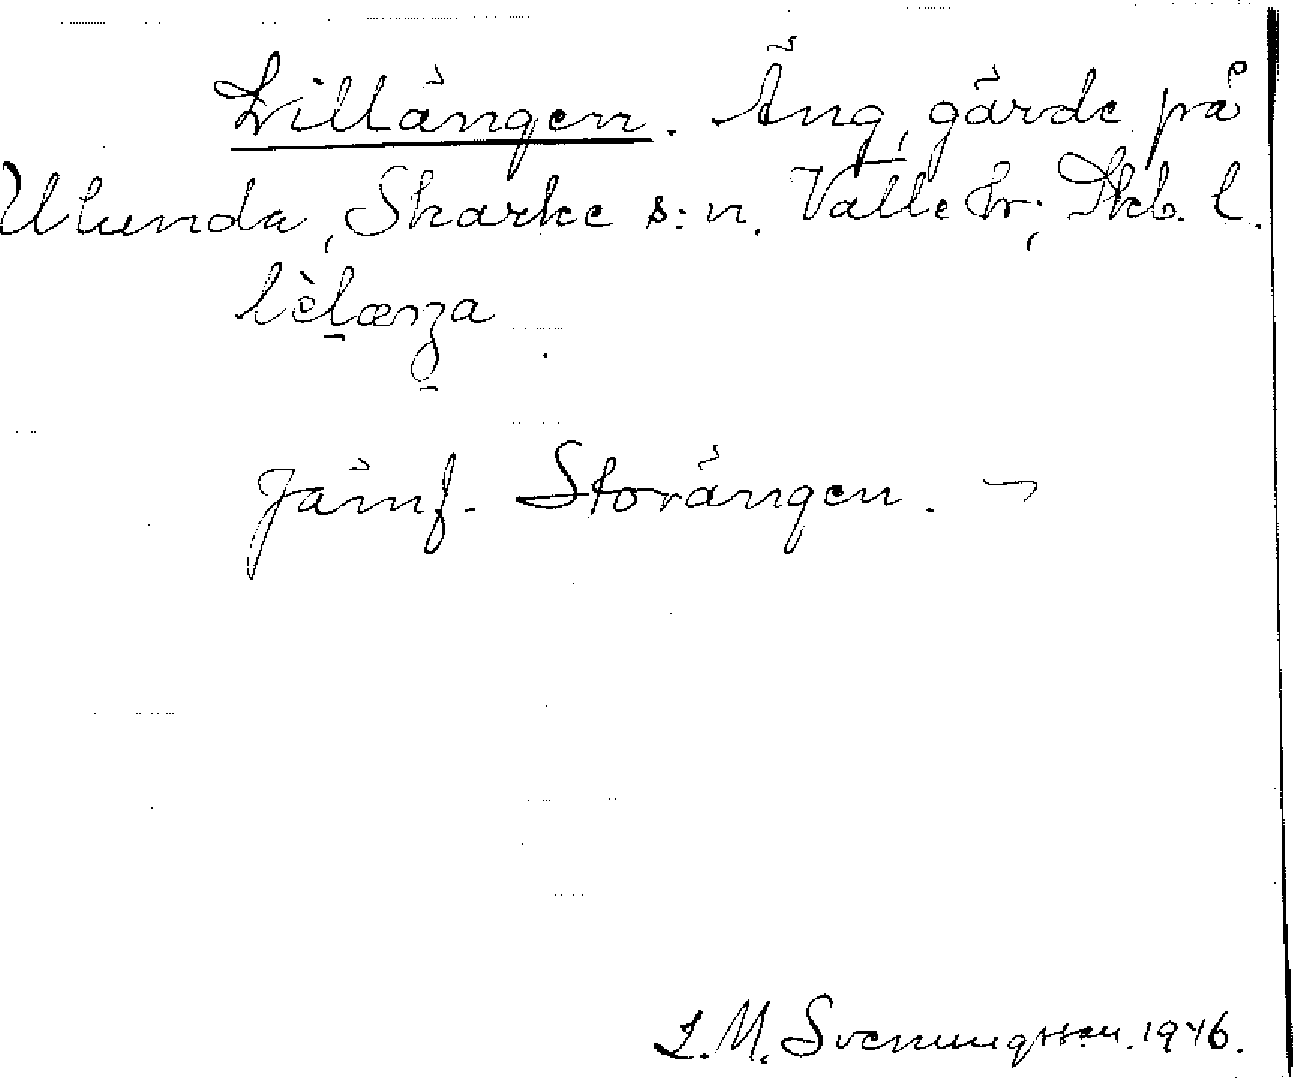 Lillängen. Äng, gärde på
Ulunda, Skarke s:n. Valle hr; Skb. l.
lèlænza
Jämf. Storängen. ¬
L.M. Svenungsson. 1946.